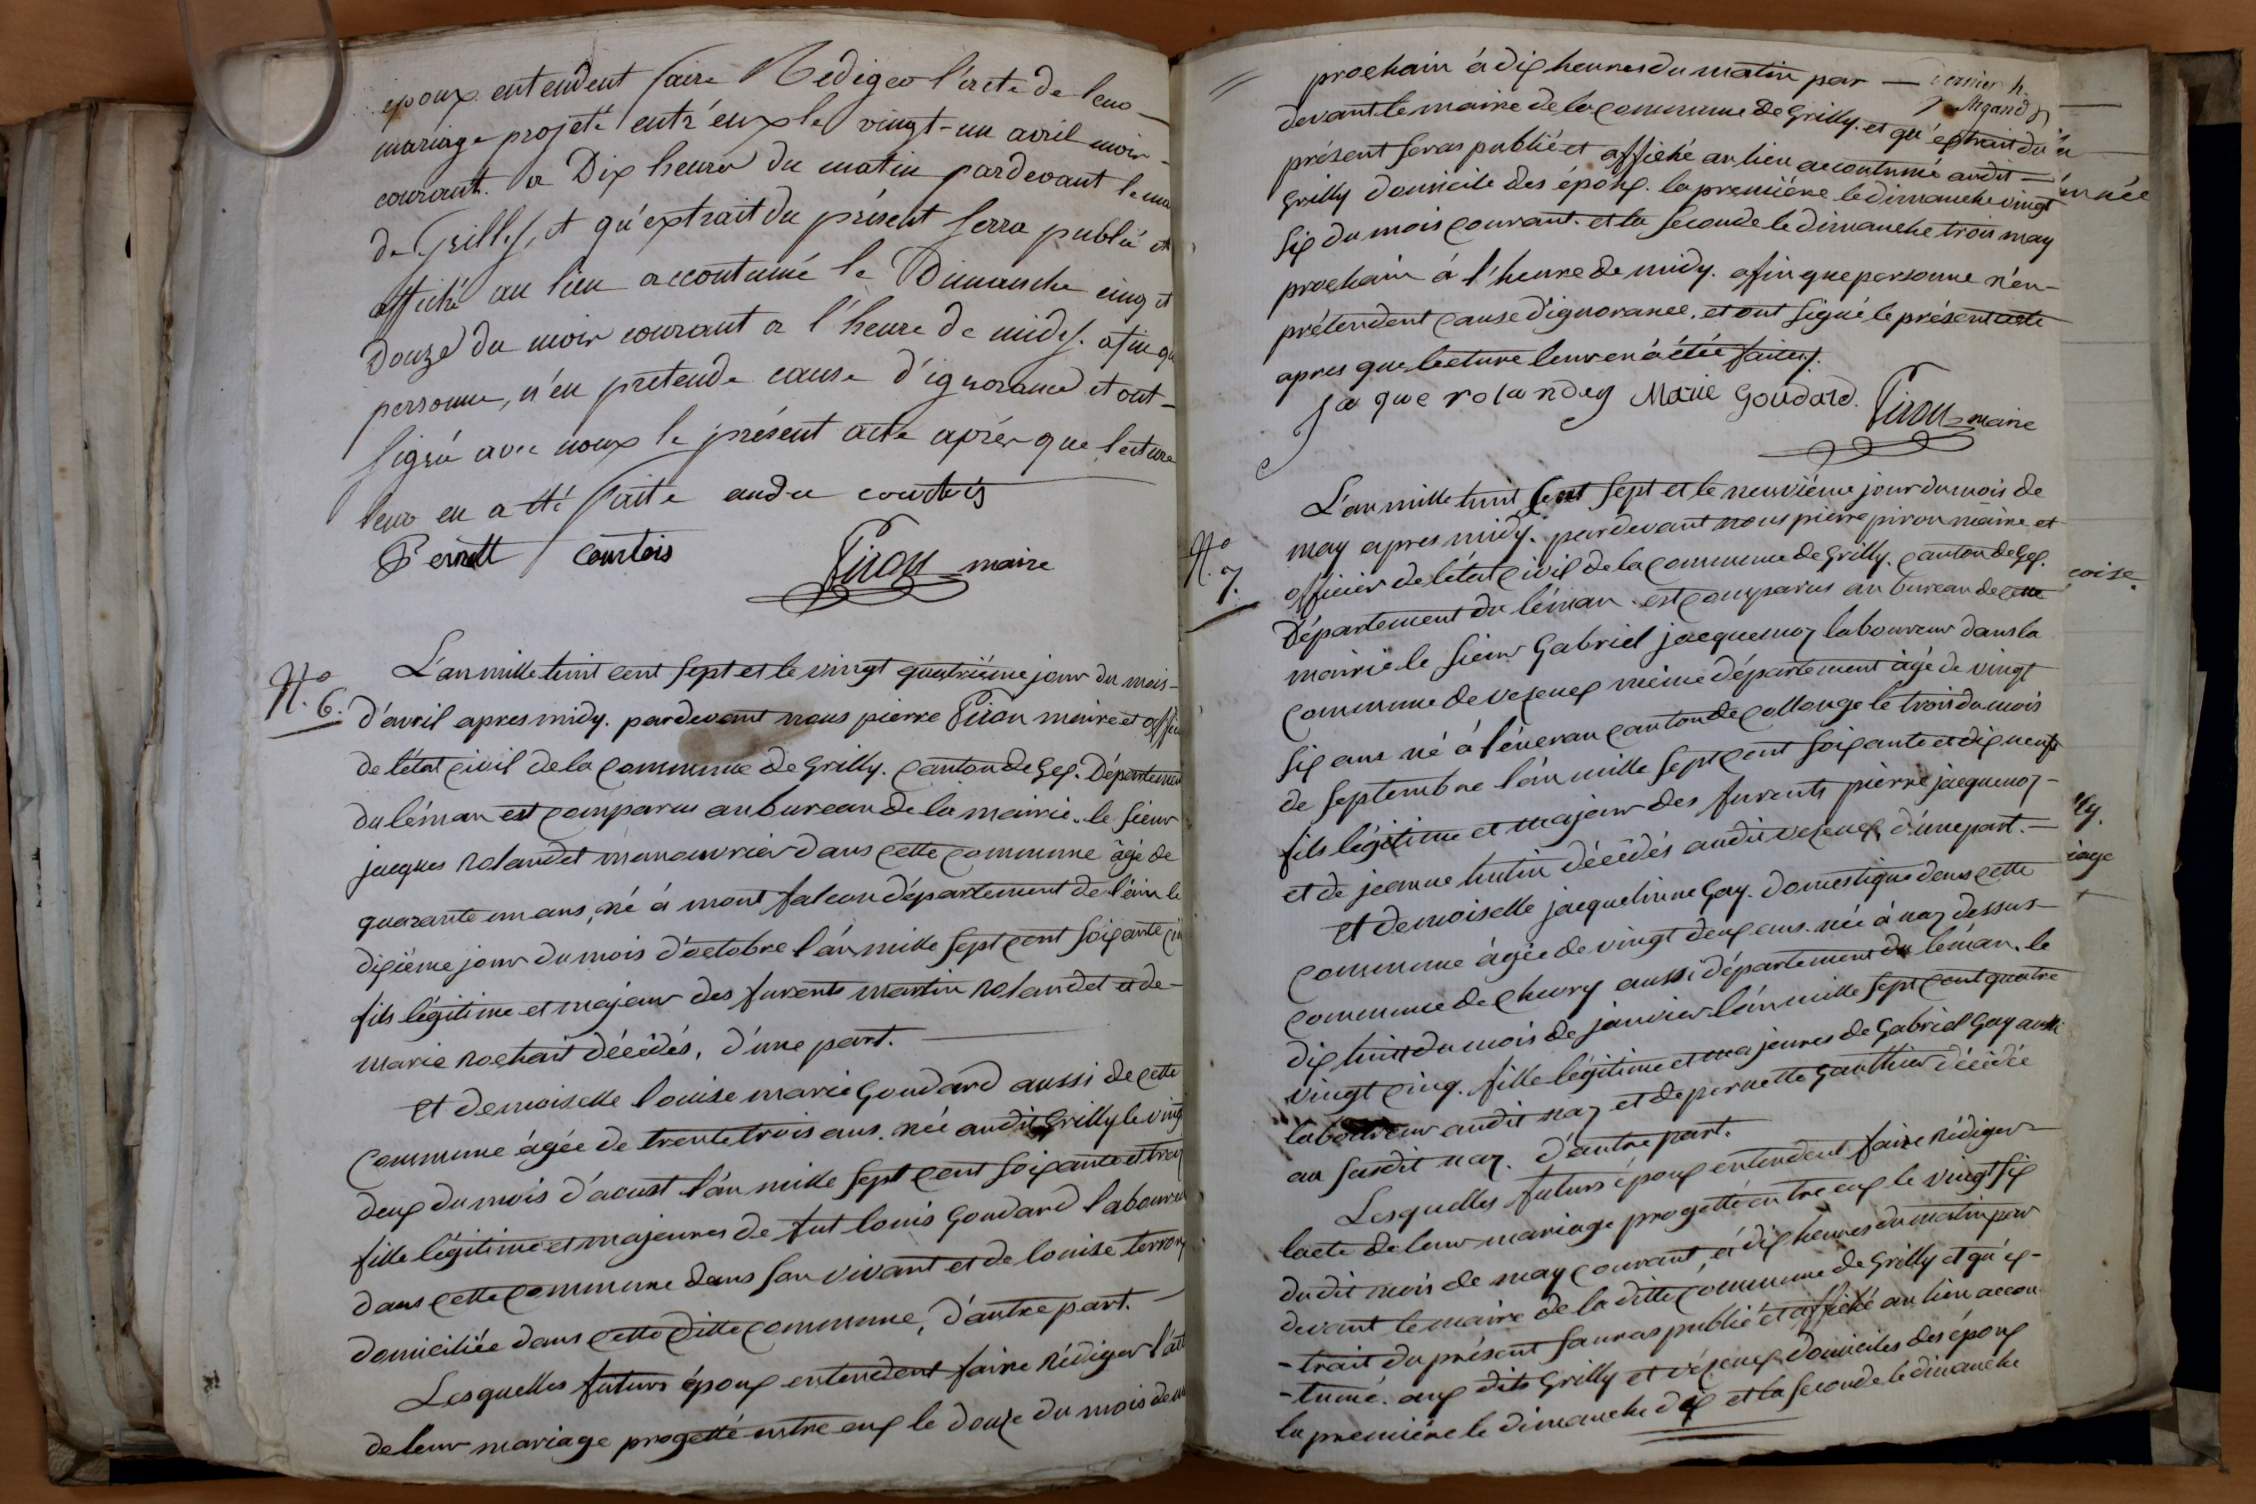 epoux entendent faire Rediger l'acte de leur
mariage projeté entr'eux le vingt-un avril mois
courant. a Dix heures du matin pardevant le
de Grilly, et qu'extrait du présent serra publié et
affiché au lieu accoutumé le Dimanche cinq et
Douze du mois courant a l'heure de midy. afin
personne, n'en pretende cause d'ignorance et ont
signé avec noux le présent acte après que lecture
leur en a été faite andre courtois
Pernett courtois Piron maire
N.° 6.
L'an mille huit cent sept et le vingt quatrième jour du mois
d'avril apres midy. pardevant nous pierre Piron maire et
de l'état civil de la commune de Grilly. canton de Gex. Département
du léman est comparus au bureau de la mairie. le sieur
jacques Rolandet manouvrier dans cette commune âgé de
quarante un ans, né á mont falcon département de l'ain le
dixième jour du mois d'octobre l'án mille sept cent soixante
fils légitime et majeur des furents martin Rolandet et de
marie Rochait décédés, d'une part.
et demoiselle louise marie Goudard aussi de cette
commune âgée de trente trois ans. née audit Grilly le vingt
deux du mois d'acust l'án mille sept cent soixante et
fille légitime et majeures de fut louis Goudard laboureur
dans cette commune dans son vivant et de louise
domiciliée dans cette ditte commune, d'autre part.
Lesquelles futurs époux entendent faire Rédiger
de leur mariage progetté entre eux le douze du mois de
prochain á dix heures du matin par
devant le maire de la commune de Grilly. et qu'extrait du
présent seras publié et affiché au lieu accoutumé audit
Grilly domicile des époux. la première le dimanche vingt
six du mois courant. et la seconde le dimanche trois may
prochain á l'heure de midy. afin que personne n'en
prétendent cause d'ignorance. et ont signé le présent acte
apres que lecture leur en á étée faites.
Jaque rolandey Marie Goudard. Piron maire
N.° 7.
L'an mille huit cent sept et le neuvième jour du mois de
may apres midy. pardevant nous pierre piron maire et
officier de l'état civil de la commune de Grilly. canton de Gex.
Département du léman. est comparus au bureau de cette
mairie le sieur Gabriel jacquemoz laboureur dans la
commune de vesenex même département âgé de vingt
six ans né á fénevan canton de collonge le trois du mois
de septembre l'án mille sept cent soixante et dix neuf
fils légitime et majeur des furents pierre jacquemoz
et de jeanne hutin décédés audit vesenex, d'une part.
et demoiselle jacquelinne Gay. domestique dans cette
commune âgée de vingt deux ans. née á naz dessus
commune de chevry aussi département du léman. le
dix huit du mois de janvier l'án mille sept cent quatre
vingt cinq. fille légitime et majeures de Gabriel Gay aussi
laboureur audit naz et de pernette Gauthier décédée
au susdit naz. d'autre part.
Lesquelles futurs époux entendent faire Rédiger
lacte de leur mariage progetté entre eux le vingt six
dudit mois de may courant á dix heures du matin par
devant le maire de la ditte commune de Grilly et qu'ex-
-trait du présent sauras publié et affiché au lieu accou
-tumé. aux dits Grilly et vézenex domiciles des époux
la première le dimanche dix et la seconde le dimanche